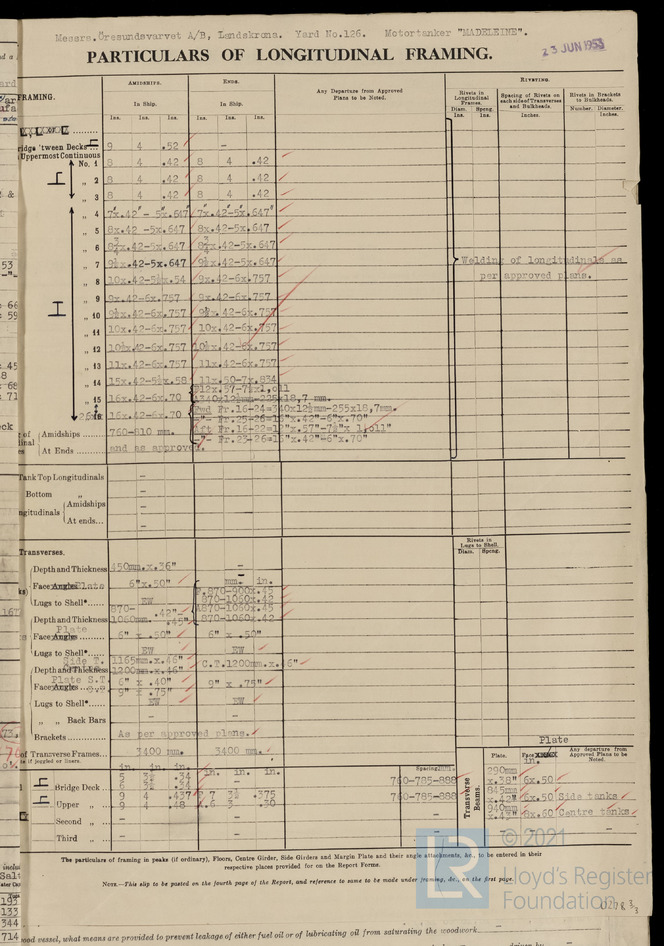 Messrs.Öresundsvarvet A/B, Landskrona. Yard No.126. Motortanker "MADELEINE".
PARTICULARS OF LONGITUDINAL FRAMING.
23 JUN 1953
FRAMING.
AMIDSHIPS. ENDS. RIVETING.
In Ship. In Ship.
Any Departure from Approved Plans to be Noted.
Rivets in Longitudinal Frames.
Spacing of Rivets on each side of Transverses and Bulkheads.
Rivets in Brackets to Bulkheads.
Ins. Ins. Ins. Ins. Ins. Ins. Diam. Ins. Spcng. Ins. Inches. Number. Diameter. Inches.
'tween Decks 9 4 .52 –
Uppermost Continuous
No. 1 8 4 .42 8 4 .42
„ 2 8 4 .42 8 4 .42
„ 3 8 4 .42 8 4 .42
„ 4 7"x.42"- 5"x.647" 7"x.42-5x.647"
„ 5 8x.42 -5x.647 8x.42-5x.647
„ 6 8¾x.42-5x.647 8¾x.42-5x.647
„ 7 9½x.42-5x.647 9½x.42-5x.647
Welding of longitudinals as per approved plans.
„ 8 10x.42-5½x.54 9x.42-6x.757
„ 9 9x.42-6x.757 9x.42-6x.757
„ 10 9½x.42-6x.757 9½x.42-6x.757
„ 11 10x.42-6x.757 10x.42-6x.757
„ 12 10½x.42-6x.757 10½x.42-6x.757
„ 13 11x.42-6x.757 11x.42-6x.757
„ 14 15x.42-5½x.58 11x.50-7x.834
„ 15 16x.42-6x.70
16x.42-6x.70 Fwd Fr.16-24=340x12½mm-255x18,7mm.
Fr.25-26=16"x.42"-6"x.70"
Amidships 760-810 mm. Aft Fr.16-22=12"x.57"-7½"x 1,011"
Fr.23-26=16"x.42"-6"x.70"
At Ends and as approved.
Tank Top Longitudinals –
Bottom „ –
Longitudinals Amidships –
At ends... –
Transverses.
Rivets in Lugs to Shell. Diam. Spcng.
Depth and Thickness 450mm.x.36" –
Face Plate 6"x.50" mm. in.
F.870-900x.45
Lugs to Shell* EW 870-1060x.42
870- .42" A870-1060x.45
Depth and Thickness 1060mm. .45" 870-1060x.42
Plate
Face 6" x .50" 6" x .50"
Lugs to Shell* EW EW
Side T. 1165mm.x.46"
Depth and Thickness 1200mm.x.46" C.T.1200mm.x.46"
Plate S.T. 6" x .40" 9" x .75"
Face 9" x .75"
Lugs to Shell* EW EW
„ „ Back Bars – –
Brackets As per approved plans.
of Transverse Frames. 3400 mm. 3400 mm.
Plate
Plate. Face in. Any departure from Approved Plans to be Noted.
in. in. in. in. in. in. Spacing
5 3½ .34
Bridge Deck 6 3½ .34 760-785-888
9 4 .437 7 3½ .375 760-785-888
Upper „ 9 4 .48 6 3 .30
Second „ – – –
Third „ – – –
Transverse Beams.
290mm x.38" 6x.50
845mm x.42" 6x.50 Side tanks
940mm x.47" 8x.60 Centre tanks
The particulars of framing in peaks (if ordinary), Floors, Centre Girder, Side Girders and Margin Plate and their angle attachments, &c., to be entered in their respective places provided for on the Report Forms.
NOTE.—This slip to be posted on the fourth page of the Report, and reference to same to be made under framing, &c., on the first page.
LR © 2021
Lloyd's Register
Foundation
193
133
344
714
vessel, what means are provided to prevent leakage of either fuel oil or of lubricating oil from saturating the woodwork